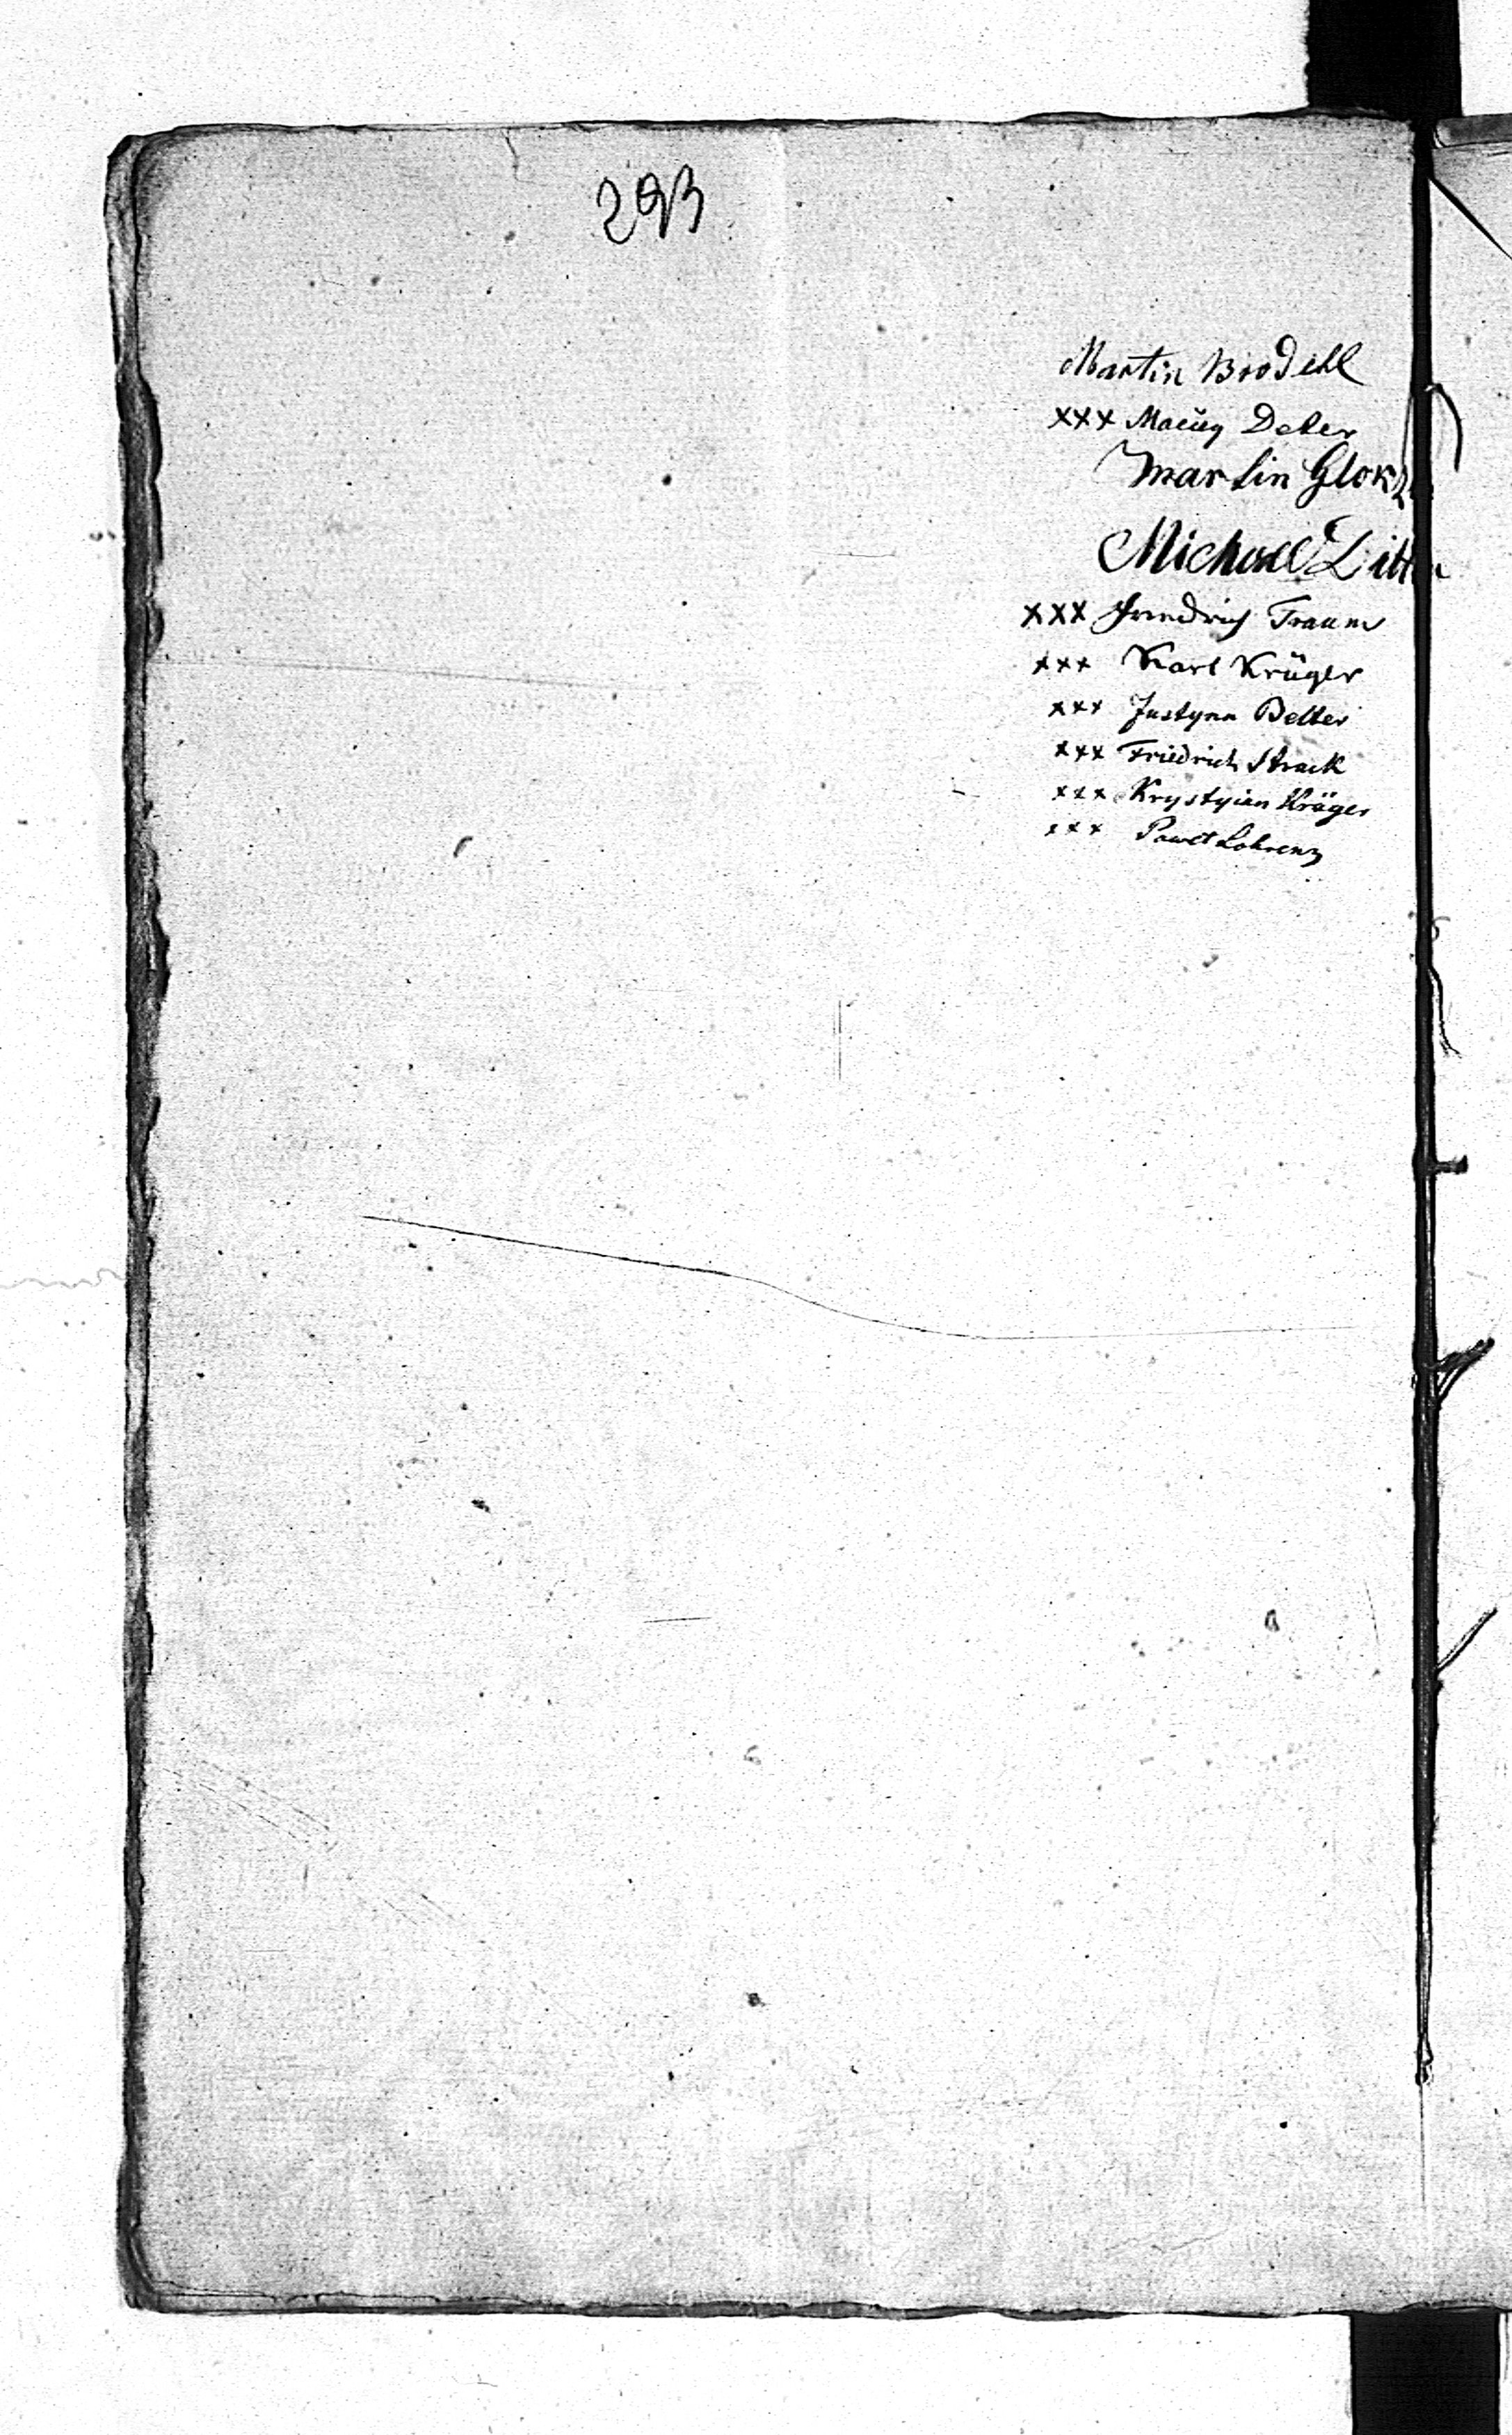 293
Martin Brodehl
xxx Macieg Deter
Martin Glok
Michael Litt
xxx Friedrich Traum
xxx Karl Krüger
xxx Justynn Belter
xxx Friedrich Strack
xxx Krystyian Krüger
xxx Paweł Lohrenz